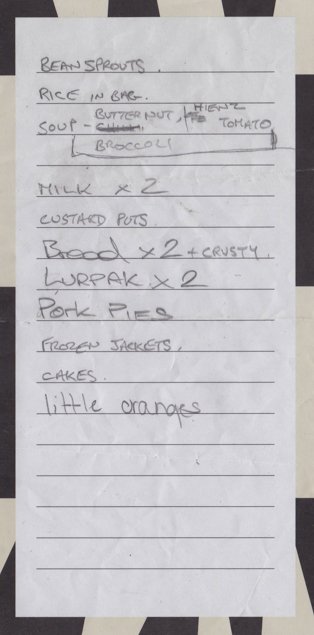 BEANSPROUTS.
RICE IN BAG.
SOUP - BUTTERNUT, HIENZ TOMATO
BROCCOLI
MILK x 2
CUSTARD POTS
Bread x 2 + CRUSTY.
LURPAK x 2
Pork PIES
FROZEN JACKETS,
CAKES.
little oranges